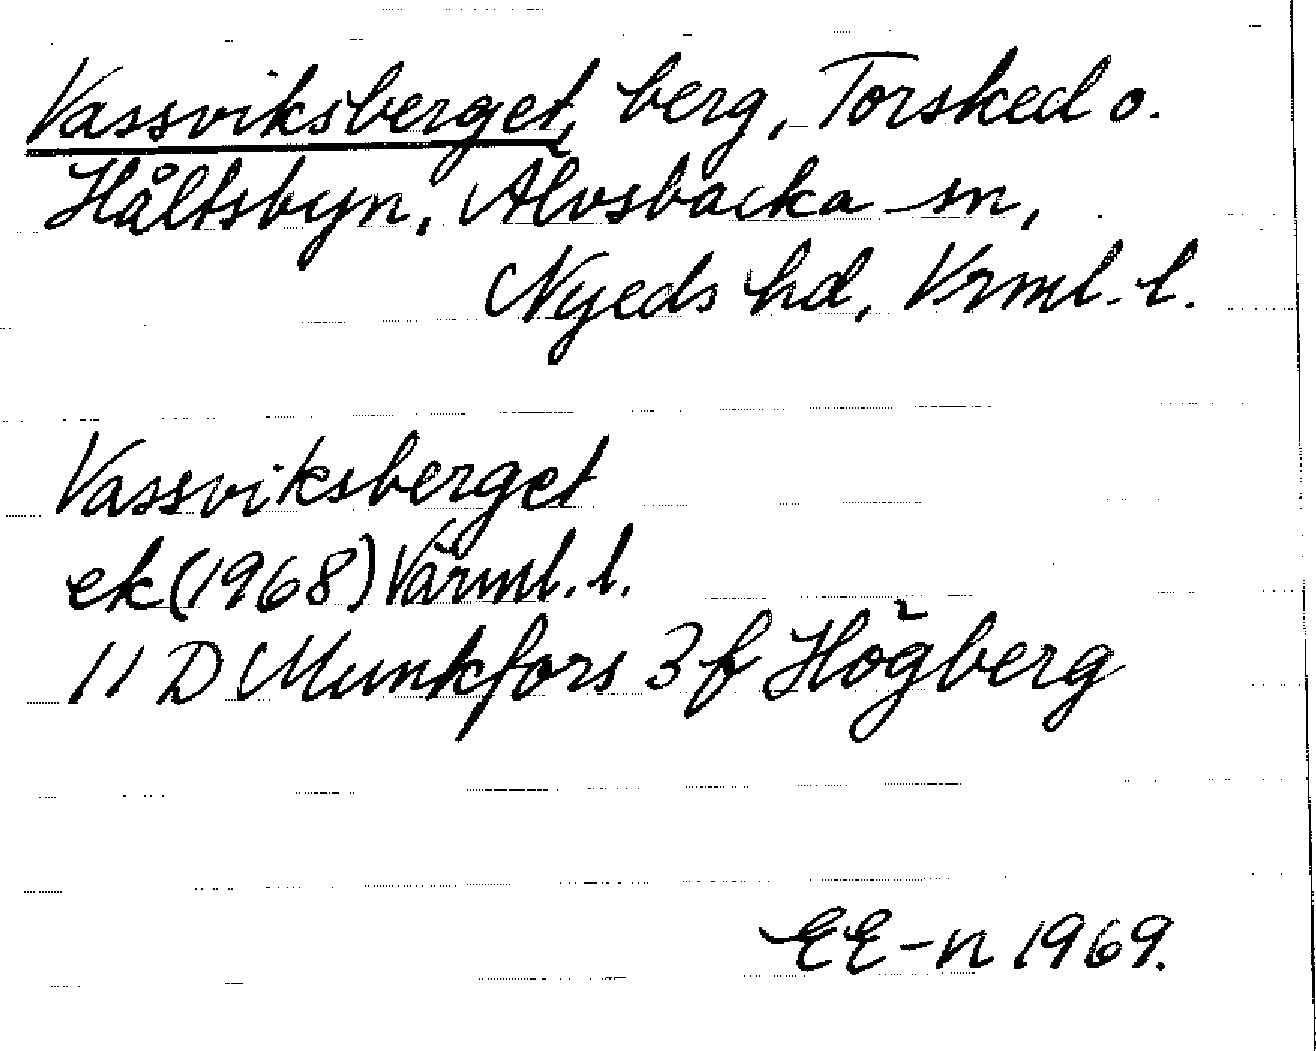 Vassviksberget, berg, Torsked o.
Håltsbyn, Älvsbacka sn,
Nyeds hd, Vrml. l.
Vassviksberget
ek (1968) Värml. l.
11 D Munkfors 3 f Högberg
EE-n 1969.